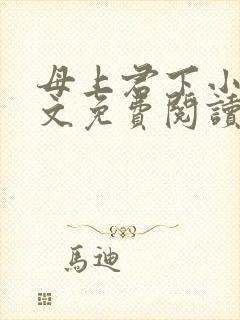 母上君下小
文免費閱讀
馬迪